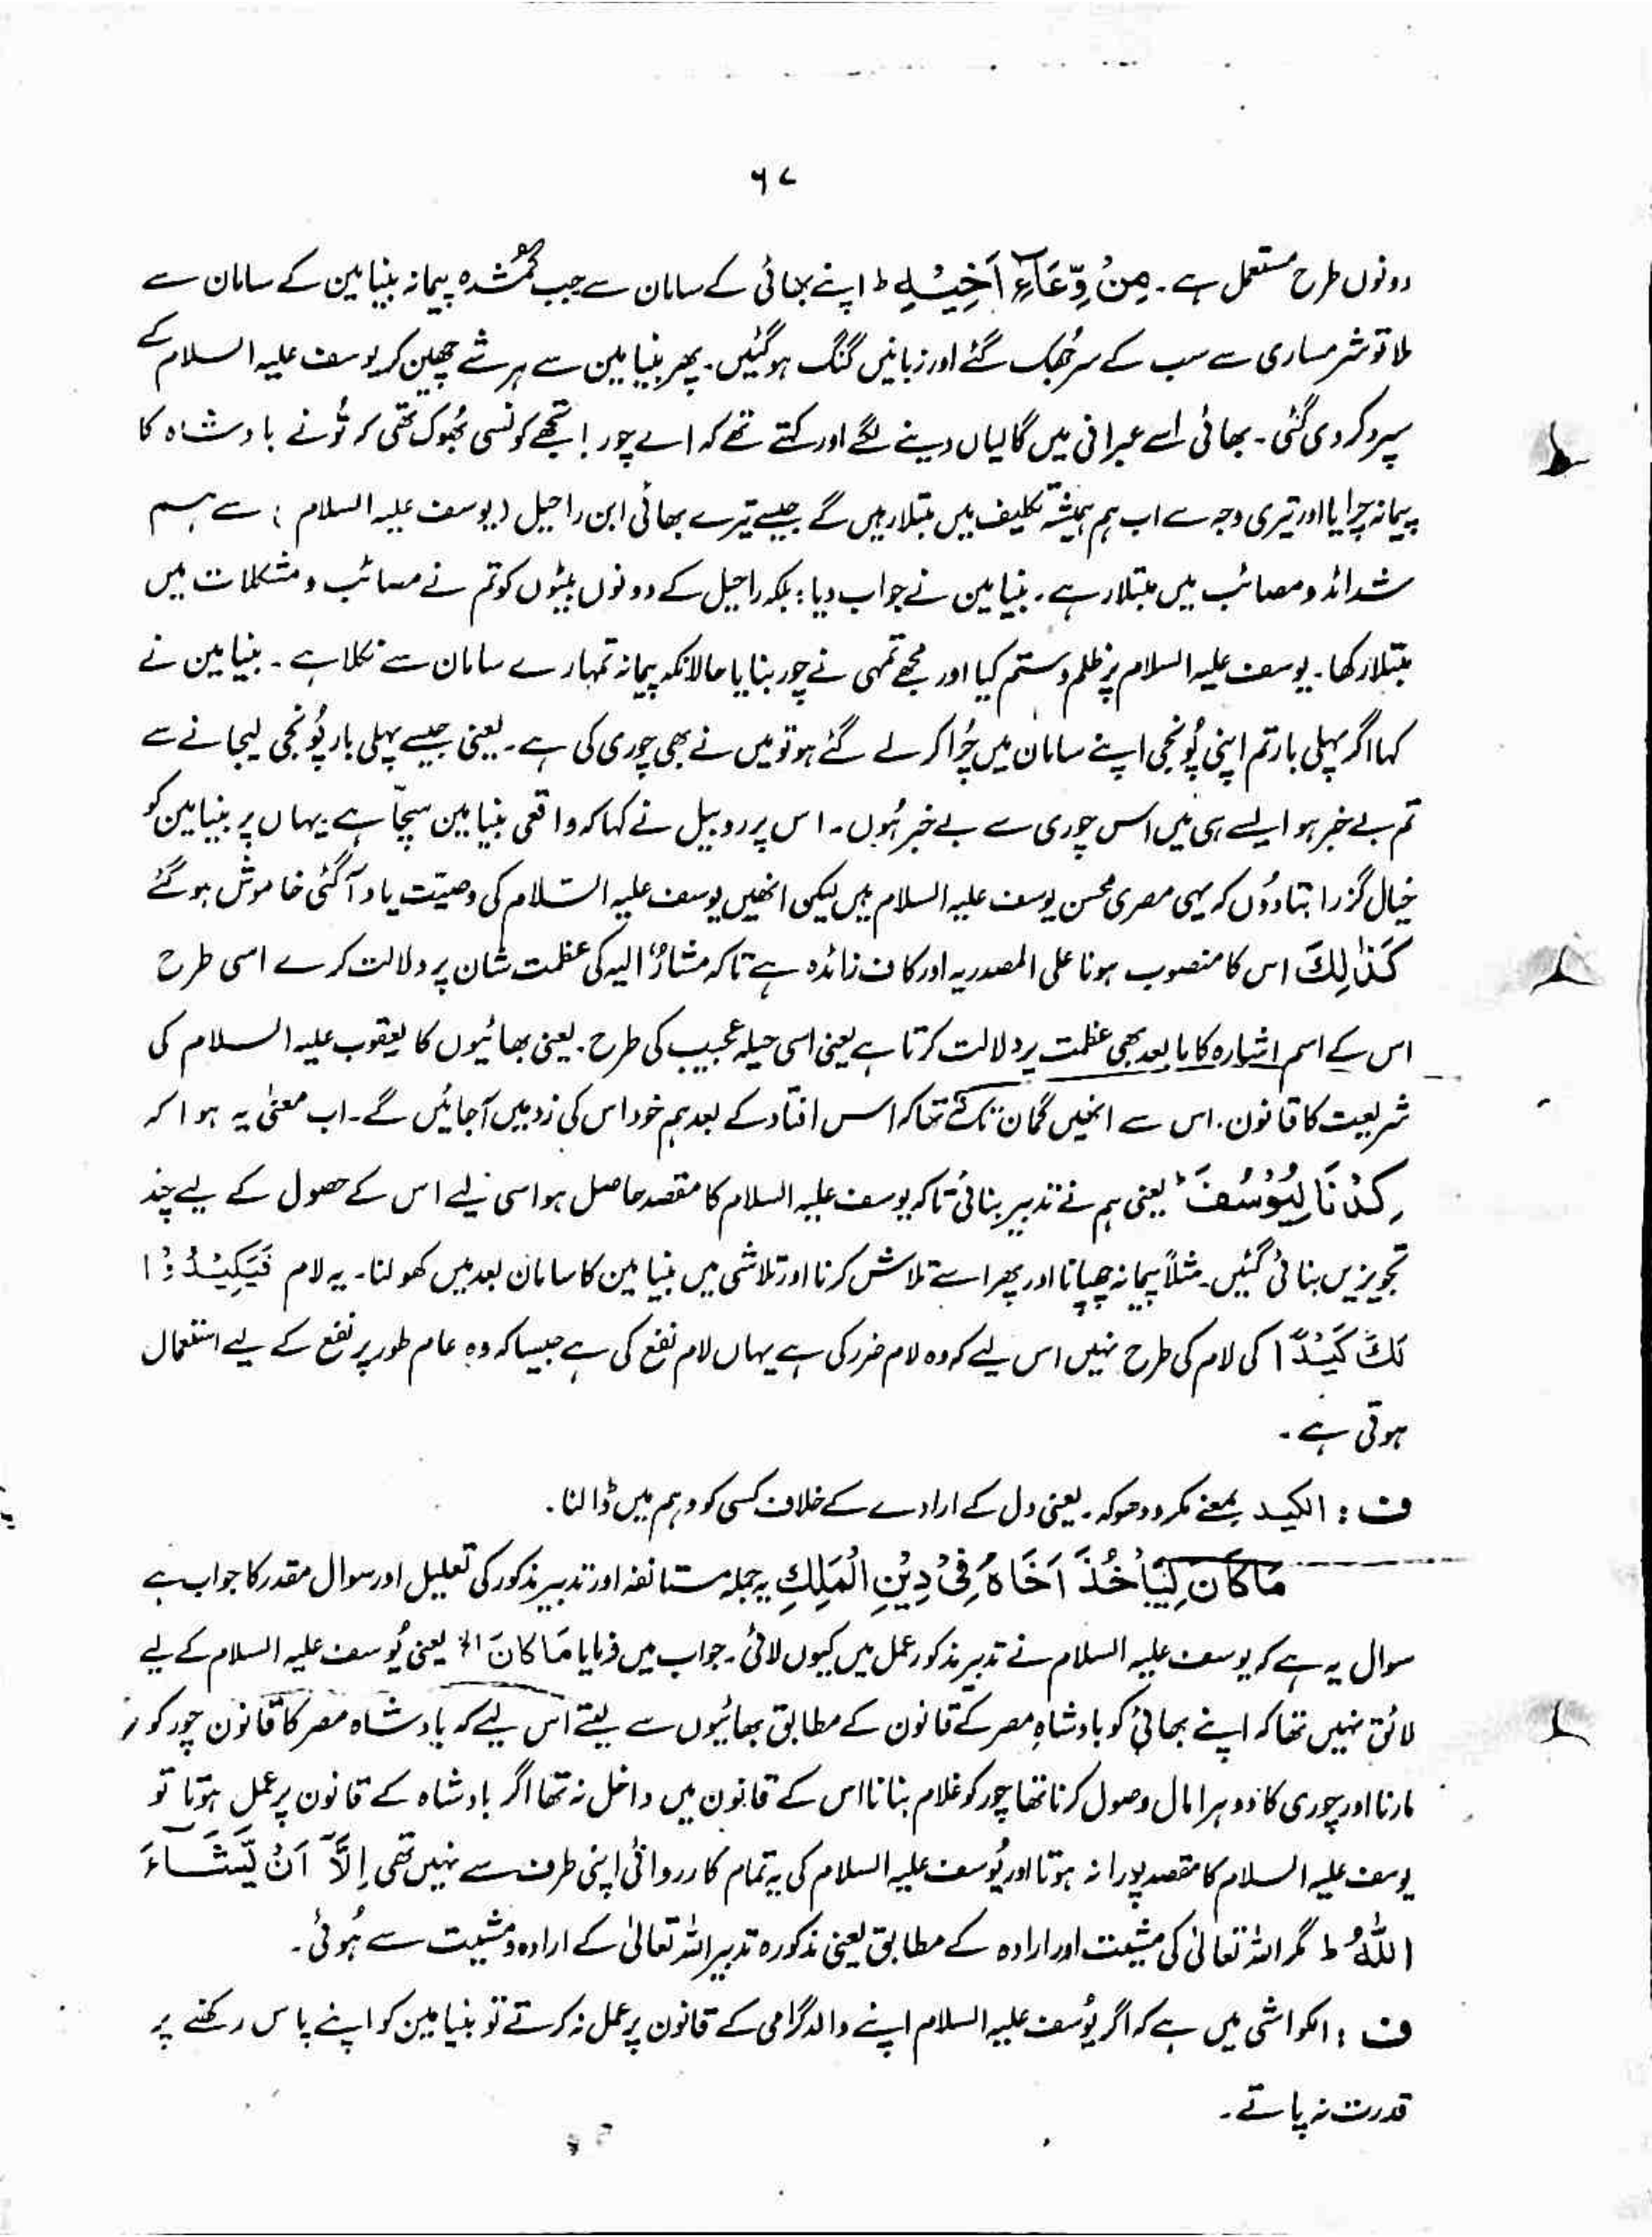 ۶۷
دونوں طرح مستعمل ہے۔ مِنْ وِّعَآءِ اَخِیْہِ ط اپنے بھائی کے سامان سے جب گمشدہ پیمانہ بنیامین کے سامان سے
ملا تو شرمساری سے سب کے سر جُھک گئے اور زبانیں گنگ ہوگئیں۔ پھر بنیامین سے ہر شے چھین کر یوسف علیہ السلام کے
سپرد کر دی گئی۔ بھائی اسے عبرانی میں گالیاں دینے لگے اور کہتے تھے کہ اے چور! تجھے کونسی بھُوک تھی کہ تُو نے بادشاہ کا
پیمانہ چرایا اور تیری وجہ سے اب ہم ہمیشہ تکلیف میں مبتلا رہیں گے جیسے تیرے بھائی ابن راحیل (یوسف علیہ السلام) سے ہم
شدائد و مصائب میں مبتلا رہے۔ بنیامین نے جواب دیا: بلکہ راحیل کے دونوں بیٹوں کو تم نے مصائب و مشکلات میں
مبتلا رکھا۔ یوسف علیہ السلام پر ظلم و ستم کیا اور مجھے تمہی نے چور بنایا حالانکہ پیمانہ تمہارے سامان سے نکلا ہے۔ بنیامین نے
کہا اگر پہلی بار تم اپنی پُونجی اپنے سامان میں چُرا کر لے گئے ہو تو میں نے بھی چوری کی ہے۔ یعنی جیسے پہلی بار پُونجی لیجانے سے
تم بے خبر ہو ایسے ہی میں اس چوری سے بے خبر ہُوں۔ اس پر روبیل نے کہا کہ واقعی بنیامین سچّا ہے یہاں پر بنیامین کو
خیال گزرا بتا دوُں کہ یہی مصری محسن یوسف علیہ السلام ہیں لیکن انھیں یوسف علیہ السّلام کی وصیّت یاد آگئی خاموش ہو گئے
کَذٰلِكَ اس کا منصوب ہونا علی المصدریہ اور کاف زائدہ ہے تاکہ مشارٌ الیہ کی عظمت شان پر دلالت کرے اسی طرح
اس کے اسم اشارہ کا مابعد بھی عظمت پر دلالت کرتا ہے یعنی اسی حیلہ عجیب کی طرح۔ یعنی بھائیوں کا یعقوب علیہ السلام کی
شریعت کا قانون۔ اس سے انھیں گمان تک نہ تھا کہ اس افتاد کے بعد ہم خود اس کی زد میں آجائیں گے۔ اب معنیٰ یہ ہوا کہ
کِدْنَا لِیُوْسُفَ ط یعنی ہم نے تدبیر بنائی تاکہ یوسف علیہ السلام کا مقصد حاصل ہو اسی لیے اس کے حصول کے لیے چند
تجویزیں بنائی گئیں۔ مثلاً پیمانہ چھپانا اور پھر اسے تلاش کرنا اور تلاشی میں بنیامین کا سامان بعد میں کھولنا۔ یہ لام فَیَکِیْدُوْا
لَكَ کَیْدًا کی لام کی طرح نہیں اس لیے کہ وہ لام ضرر کی ہے یہاں لام نفع کی ہے جیسا کہ وہ عام طور پر نفع کے لیے استعمال
ہوتی ہے۔
ف : الکید بمعنے مکر و دھوکہ۔ یعنی دل کے ارادے کے خلاف کسی کو وہم میں ڈالنا۔
مَا کَانَ لِیَاْخُذَ اَخَاہُ فِیْ دِیْنِ الْمَلِكِ یہ جملہ مستانفہ اور تدبیر مذکور کی تعلیل اور سوال مقدر کا جواب ہے
سوال یہ ہے کہ یوسف علیہ السلام نے تدبیر مذکور عمل میں کیوں لائی۔ جواب میں فرمایا مَا کَانَ الخ یعنی یُوسف علیہ السلام کے لیے
لائق نہیں تھا کہ اپنے بھائی کو بادشاہِ مصر کے قانون کے مطابق بھائیوں سے لیتے اس لیے کہ بادشاہ مصر کا قانون چور کو
مارنا اور چوری کا دوہرا مال وصول کرنا تھا چور کو غلام بنانا اس کے قانون میں داخل نہ تھا اگر بادشاہ کے قانون پر عمل ہوتا تو
یوسف علیہ السلام کا مقصد پورا نہ ہوتا اور یُوسف علیہ السلام کی یہ تمام کارروائی اپنی طرف سے نہیں تھی اِلَّآ اَنْ یَّشَآءَ
اللّٰہُ ط مگر اللہ تعالیٰ کی مشیت اور ارادہ کے مطابق یعنی مذکورہ تدبیر اللہ تعالیٰ کے ارادہ و مشیت سے ہُوئی۔
ف : الکواشی میں ہے کہ اگر یُوسف علیہ السلام اپنے والد گرامی کے قانون پر عمل نہ کرتے تو بنیامین کو اپنے پاس رکھنے پر
قدرت نہ پاتے۔